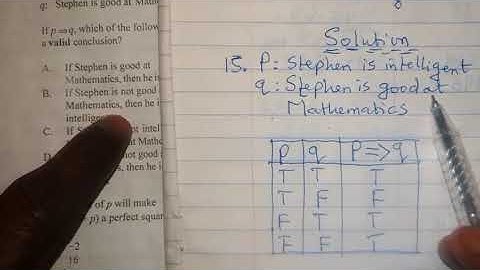 q: Stephen is good at Mathe
If p⇒q, which of the follow
a valid conclusion?
A. If Stephen is good at
Mathematics, then he i
B. If Stephen is not good
Mathematics, then he i
intellige
C. If S
intel
at Mathe
not good
s, then he is
of p will make
p) a perfect squar
-2
16
Solution
15. P: Stephen is intelligent
q: Stephen is good at
Mathematics
P q P⇒q
T T T
T F F
F T T
F F T